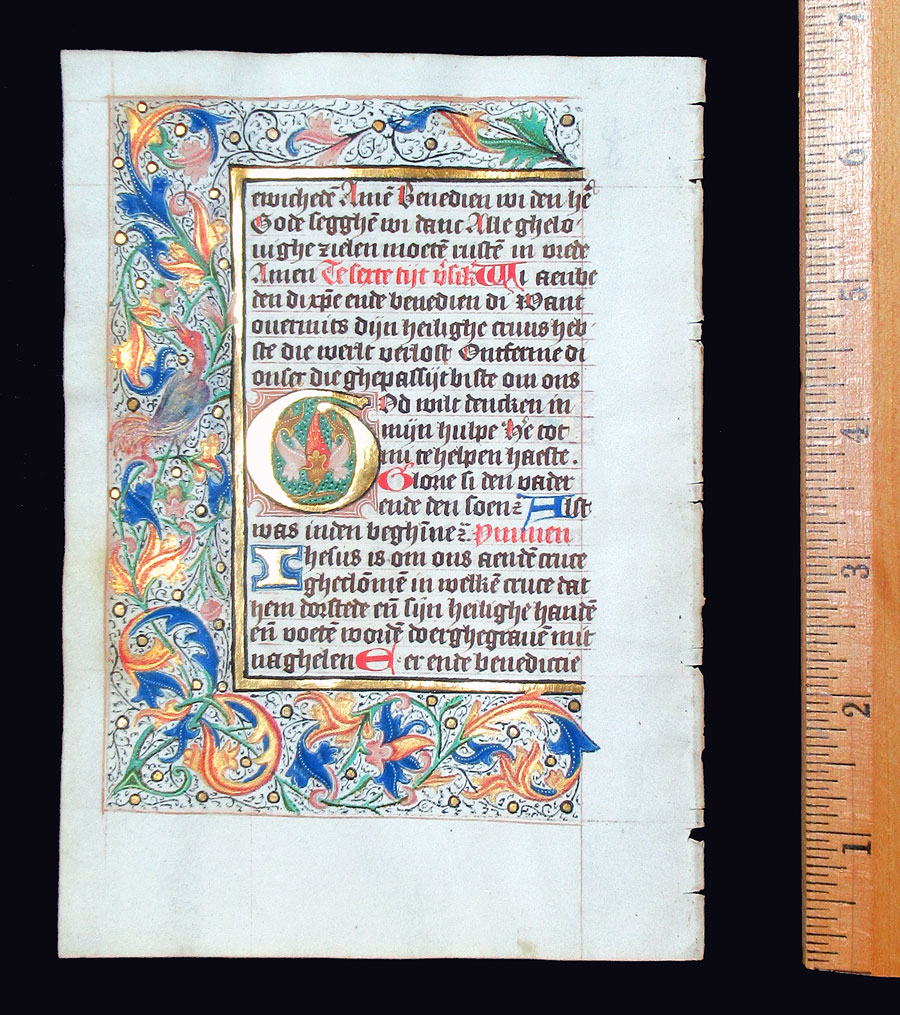 ewichede Amē Benedien wi den hē
Gode segghē wi danc Alle ghelo
uighe zielen moetē rustē in vrede
Amen Te sexte tijt v̄sikl Wi aenbe
den di xp̄e ende benedien di Want
ouermits dijn heilighe cruus heb
ste die werlt verlost Ontferme di
onser die ghepassijt biste om ons
God wilt dencken in
mijn hulpe hē tot
mi te helpen haeste.
Glorie si den vader
ende den soen Alst
was inden beghīne Ymmen
Ihesus is om ons aendē cruce
gheclōmē in welkē cruce dat
hem dorstede eñ sijn heilighe handē
eñ voetē wordē doerghegrauē mit
naghelen Eer ende benedictie
7
6
5
4
3
2
1